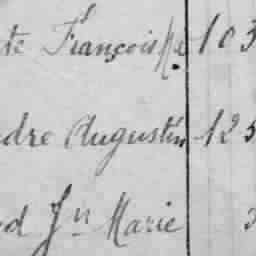 te François 103
dre Augustin 125
d Jn Marie